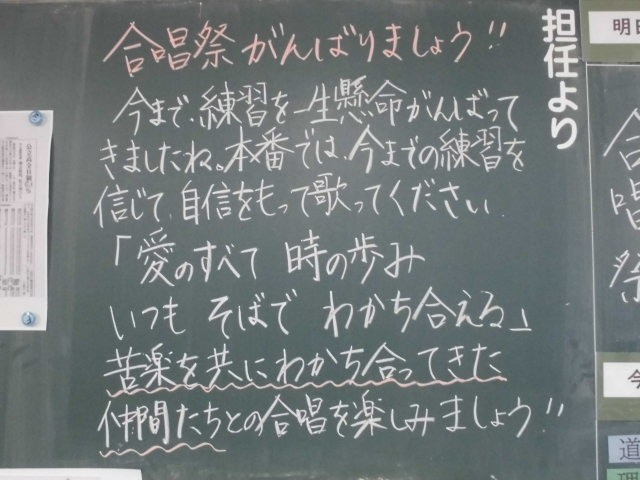 担任より
合唱祭がんばりましょう!!
今まで、練習を一生懸命がんばって
きましたね。本番では、今までの練習を
信じて、自信をもって歌ってください
「愛のすべて 時の歩み
いつも そばで わかち合える」
苦楽を共にわかち合ってきた
仲間たちとの合唱を楽しみましょう!!
明日
合唱祭
今
道
理